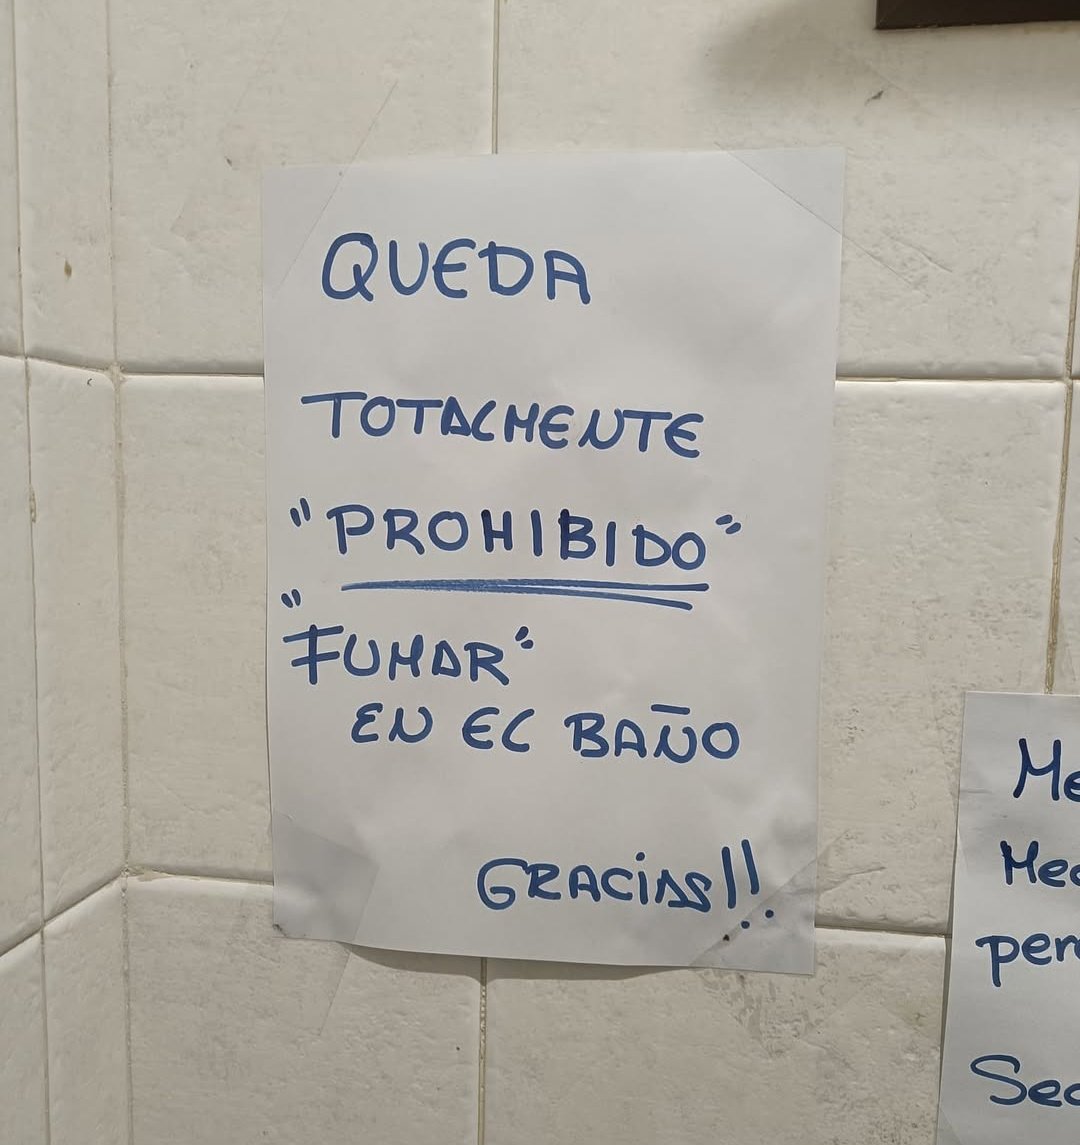 QUEDA
TOTALMENTE
"PROHIBIDO"
"FUMAR"
EN EL BAÑO
GRACIAS!!